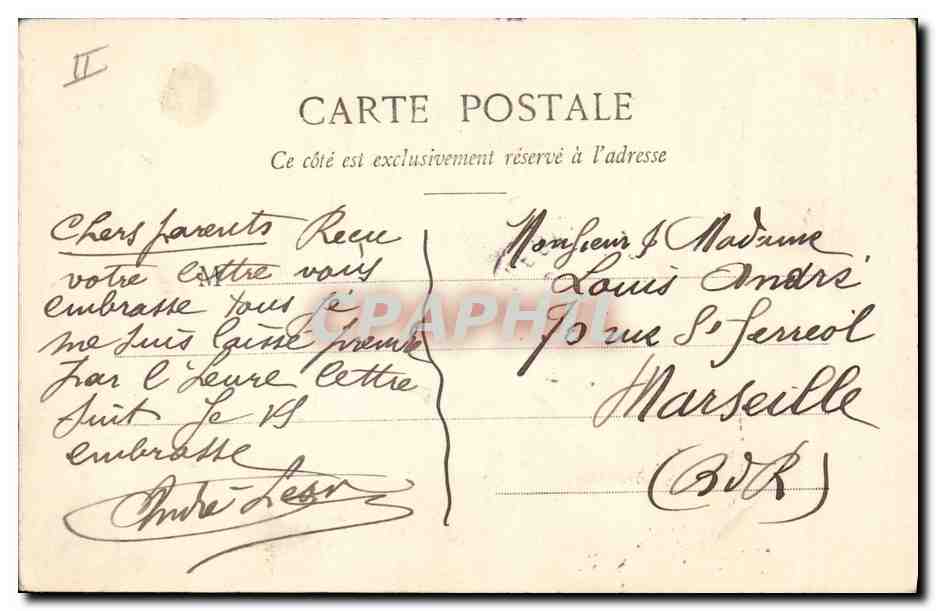 II
CARTE POSTALE
Ce côté est exclusivement réservé à l'adresse
Chers parents Recu
votre lettre vous
embrasse tous je
me suis laissé prendre
par l'heure lettre
suit Je vs
embrasse
André Léon
M
Monsieur & Madame
Louis André
rue St Ferreol
Marseille
(B d R)
CPAPHIL